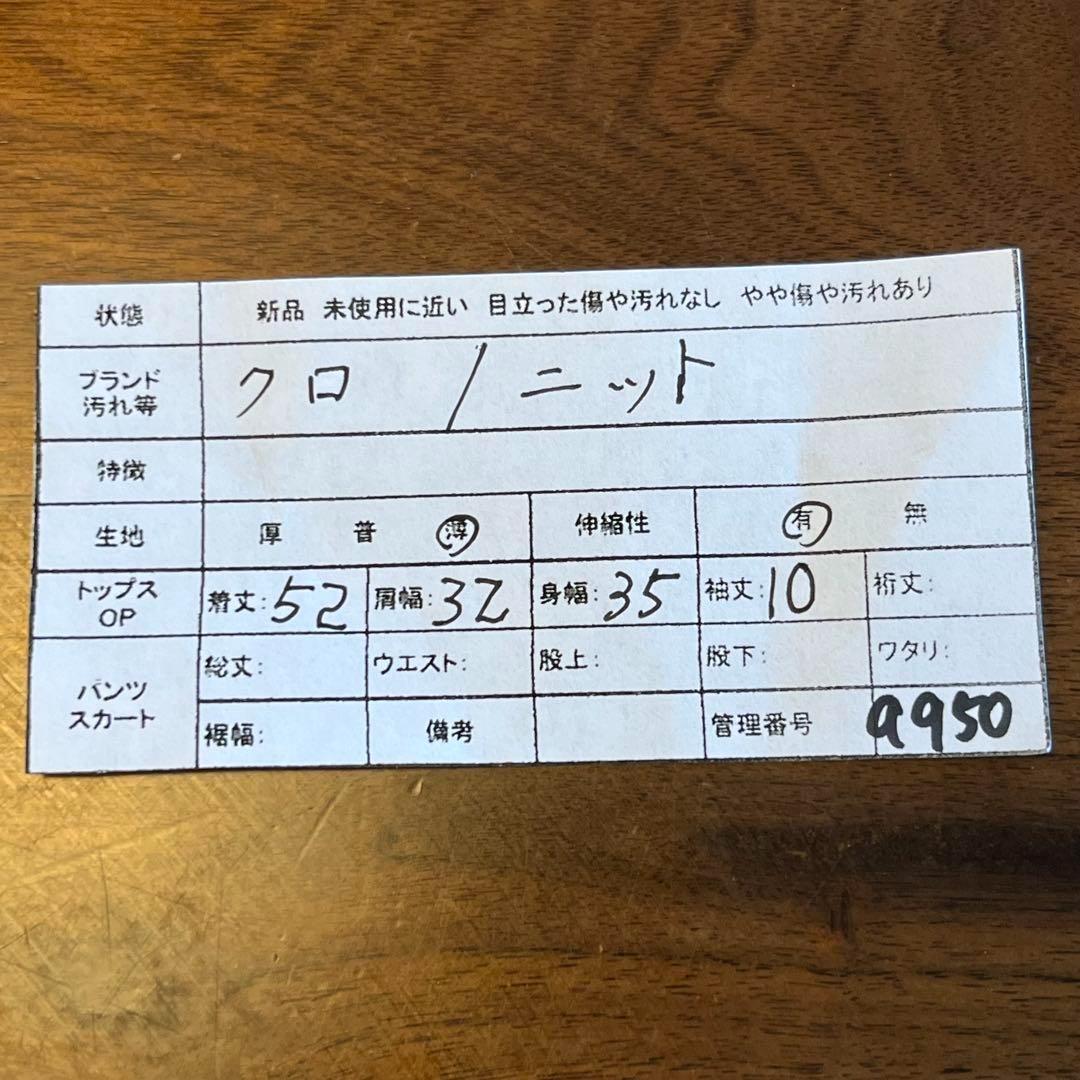 状態 新品 未使用に近い 目立った傷や汚れなし やや傷や汚れあり
ブランド
汚れ等 クロ / ニット
特徴
生地 厚 普 薄 伸縮性 有 無
トップス
OP 着丈:52 肩幅:32 身幅:35 袖丈:10 裄丈:
パンツ
スカート
総丈: ウエスト: 股上: 股下: ワタリ:
裾幅: 備考 管理番号 a950